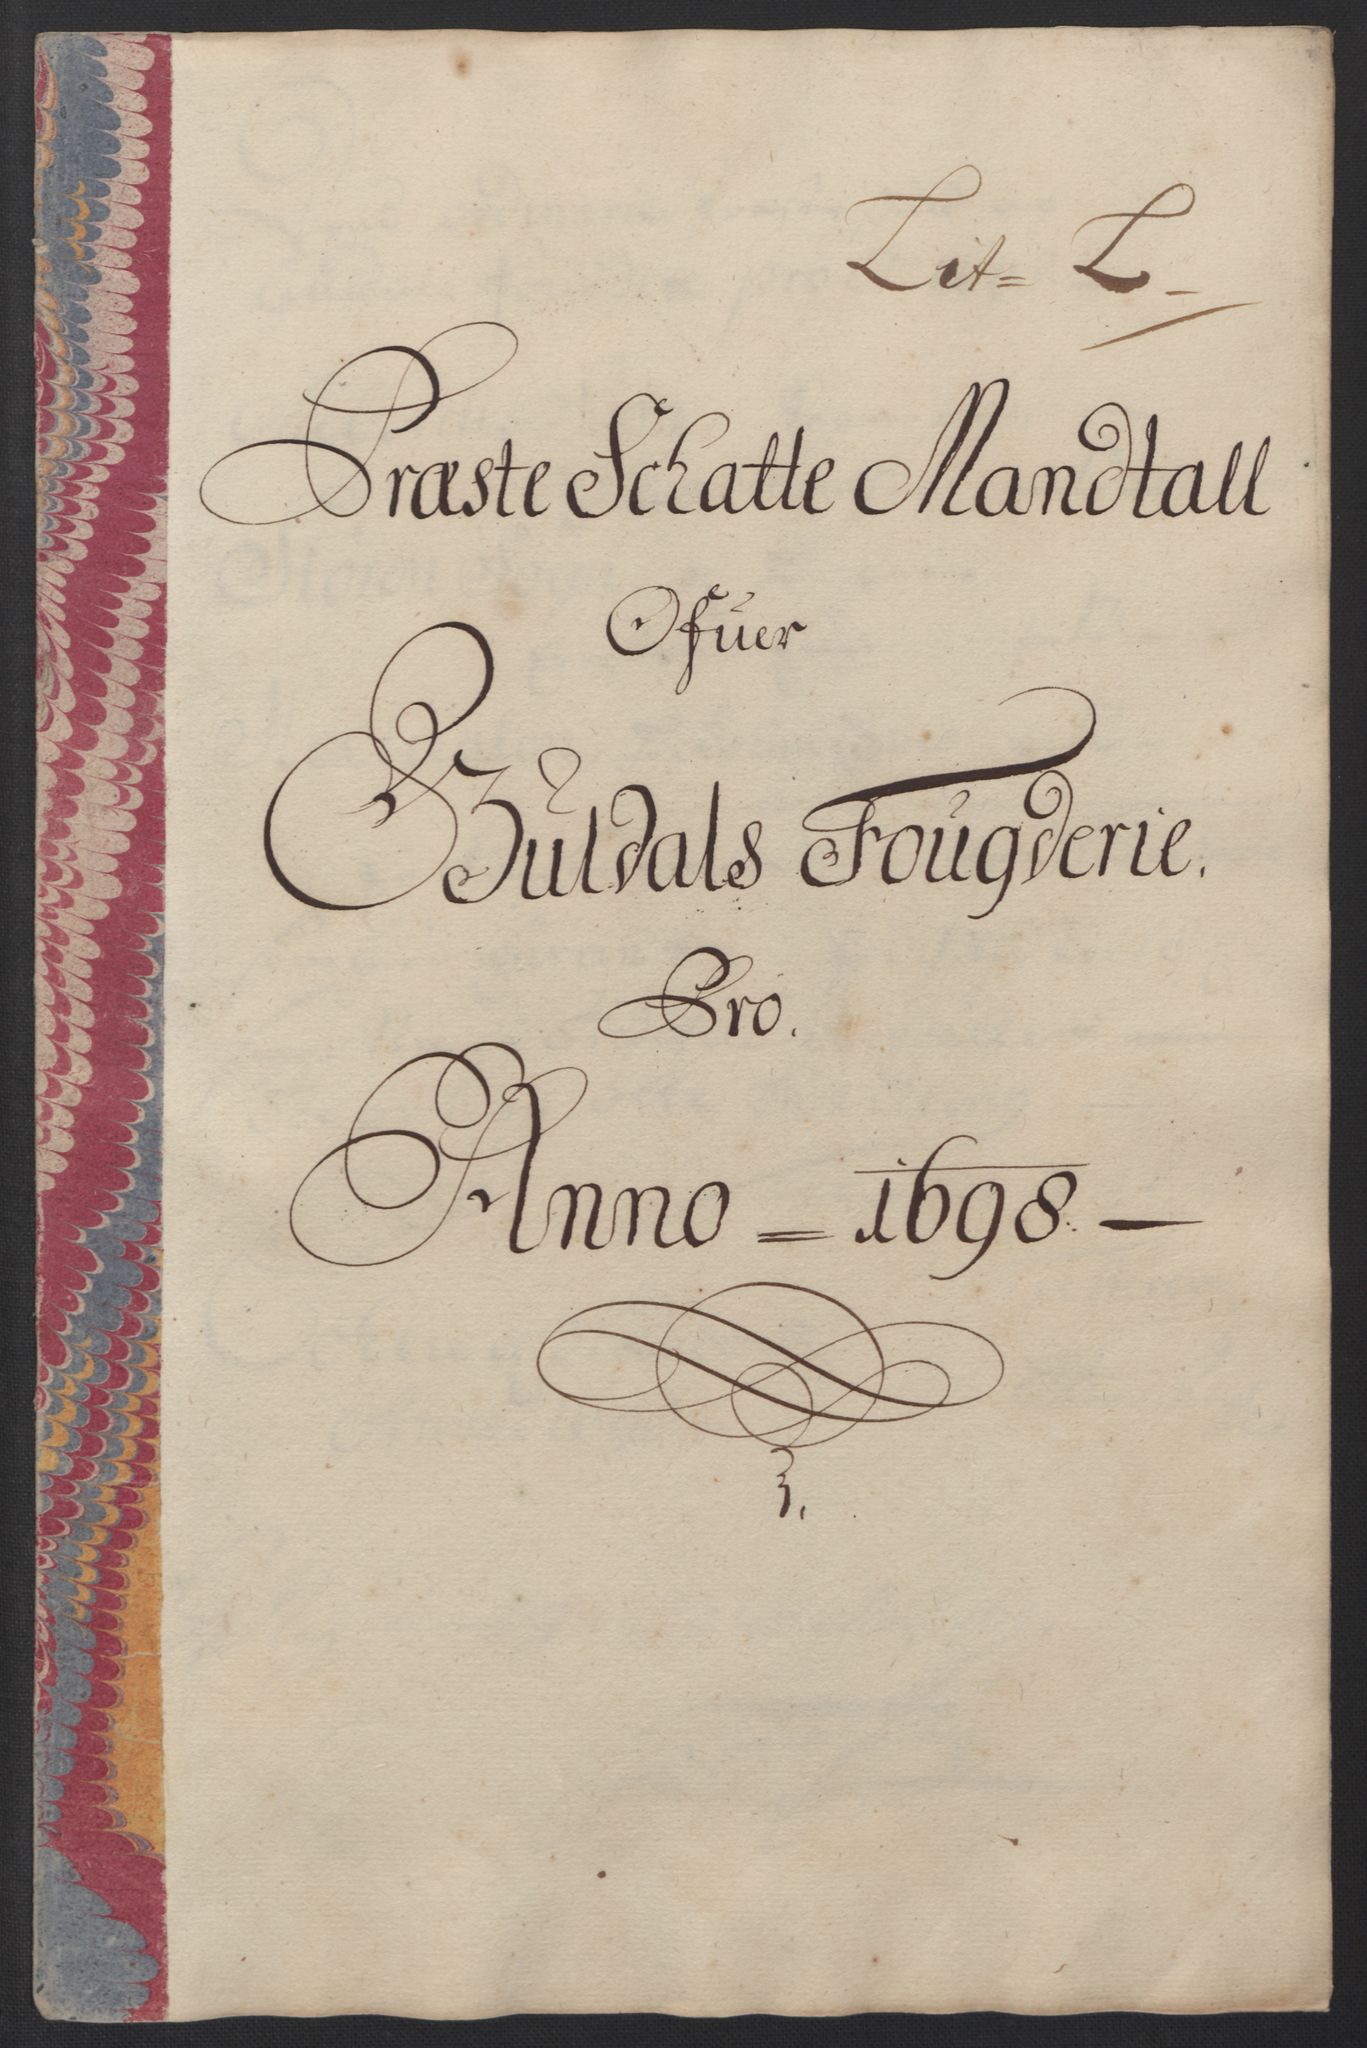 Lit= L-
Præste Schatte Mandtall
Ofuer
Guldals Fougderie.
Pro.
Anno = 1698. —
3.